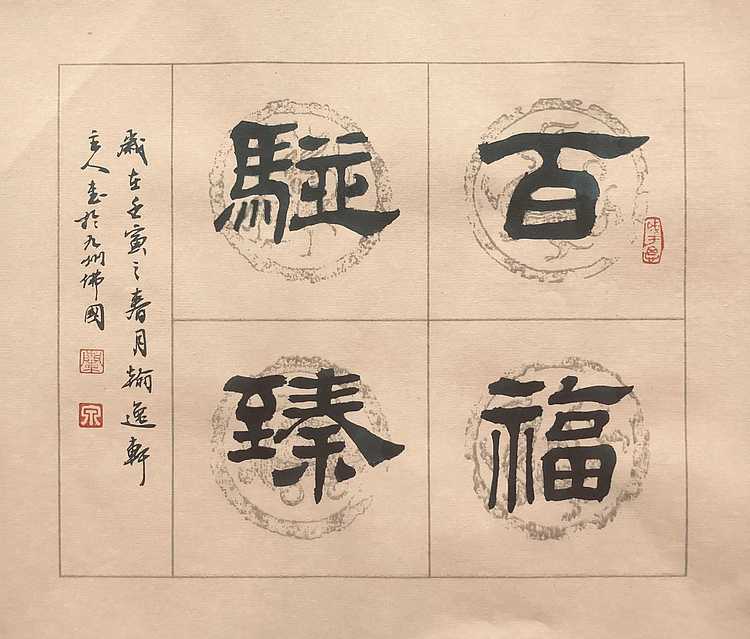 百福
駢臻
歲在壬寅之春月翰逸軒
主人書於九州佛國